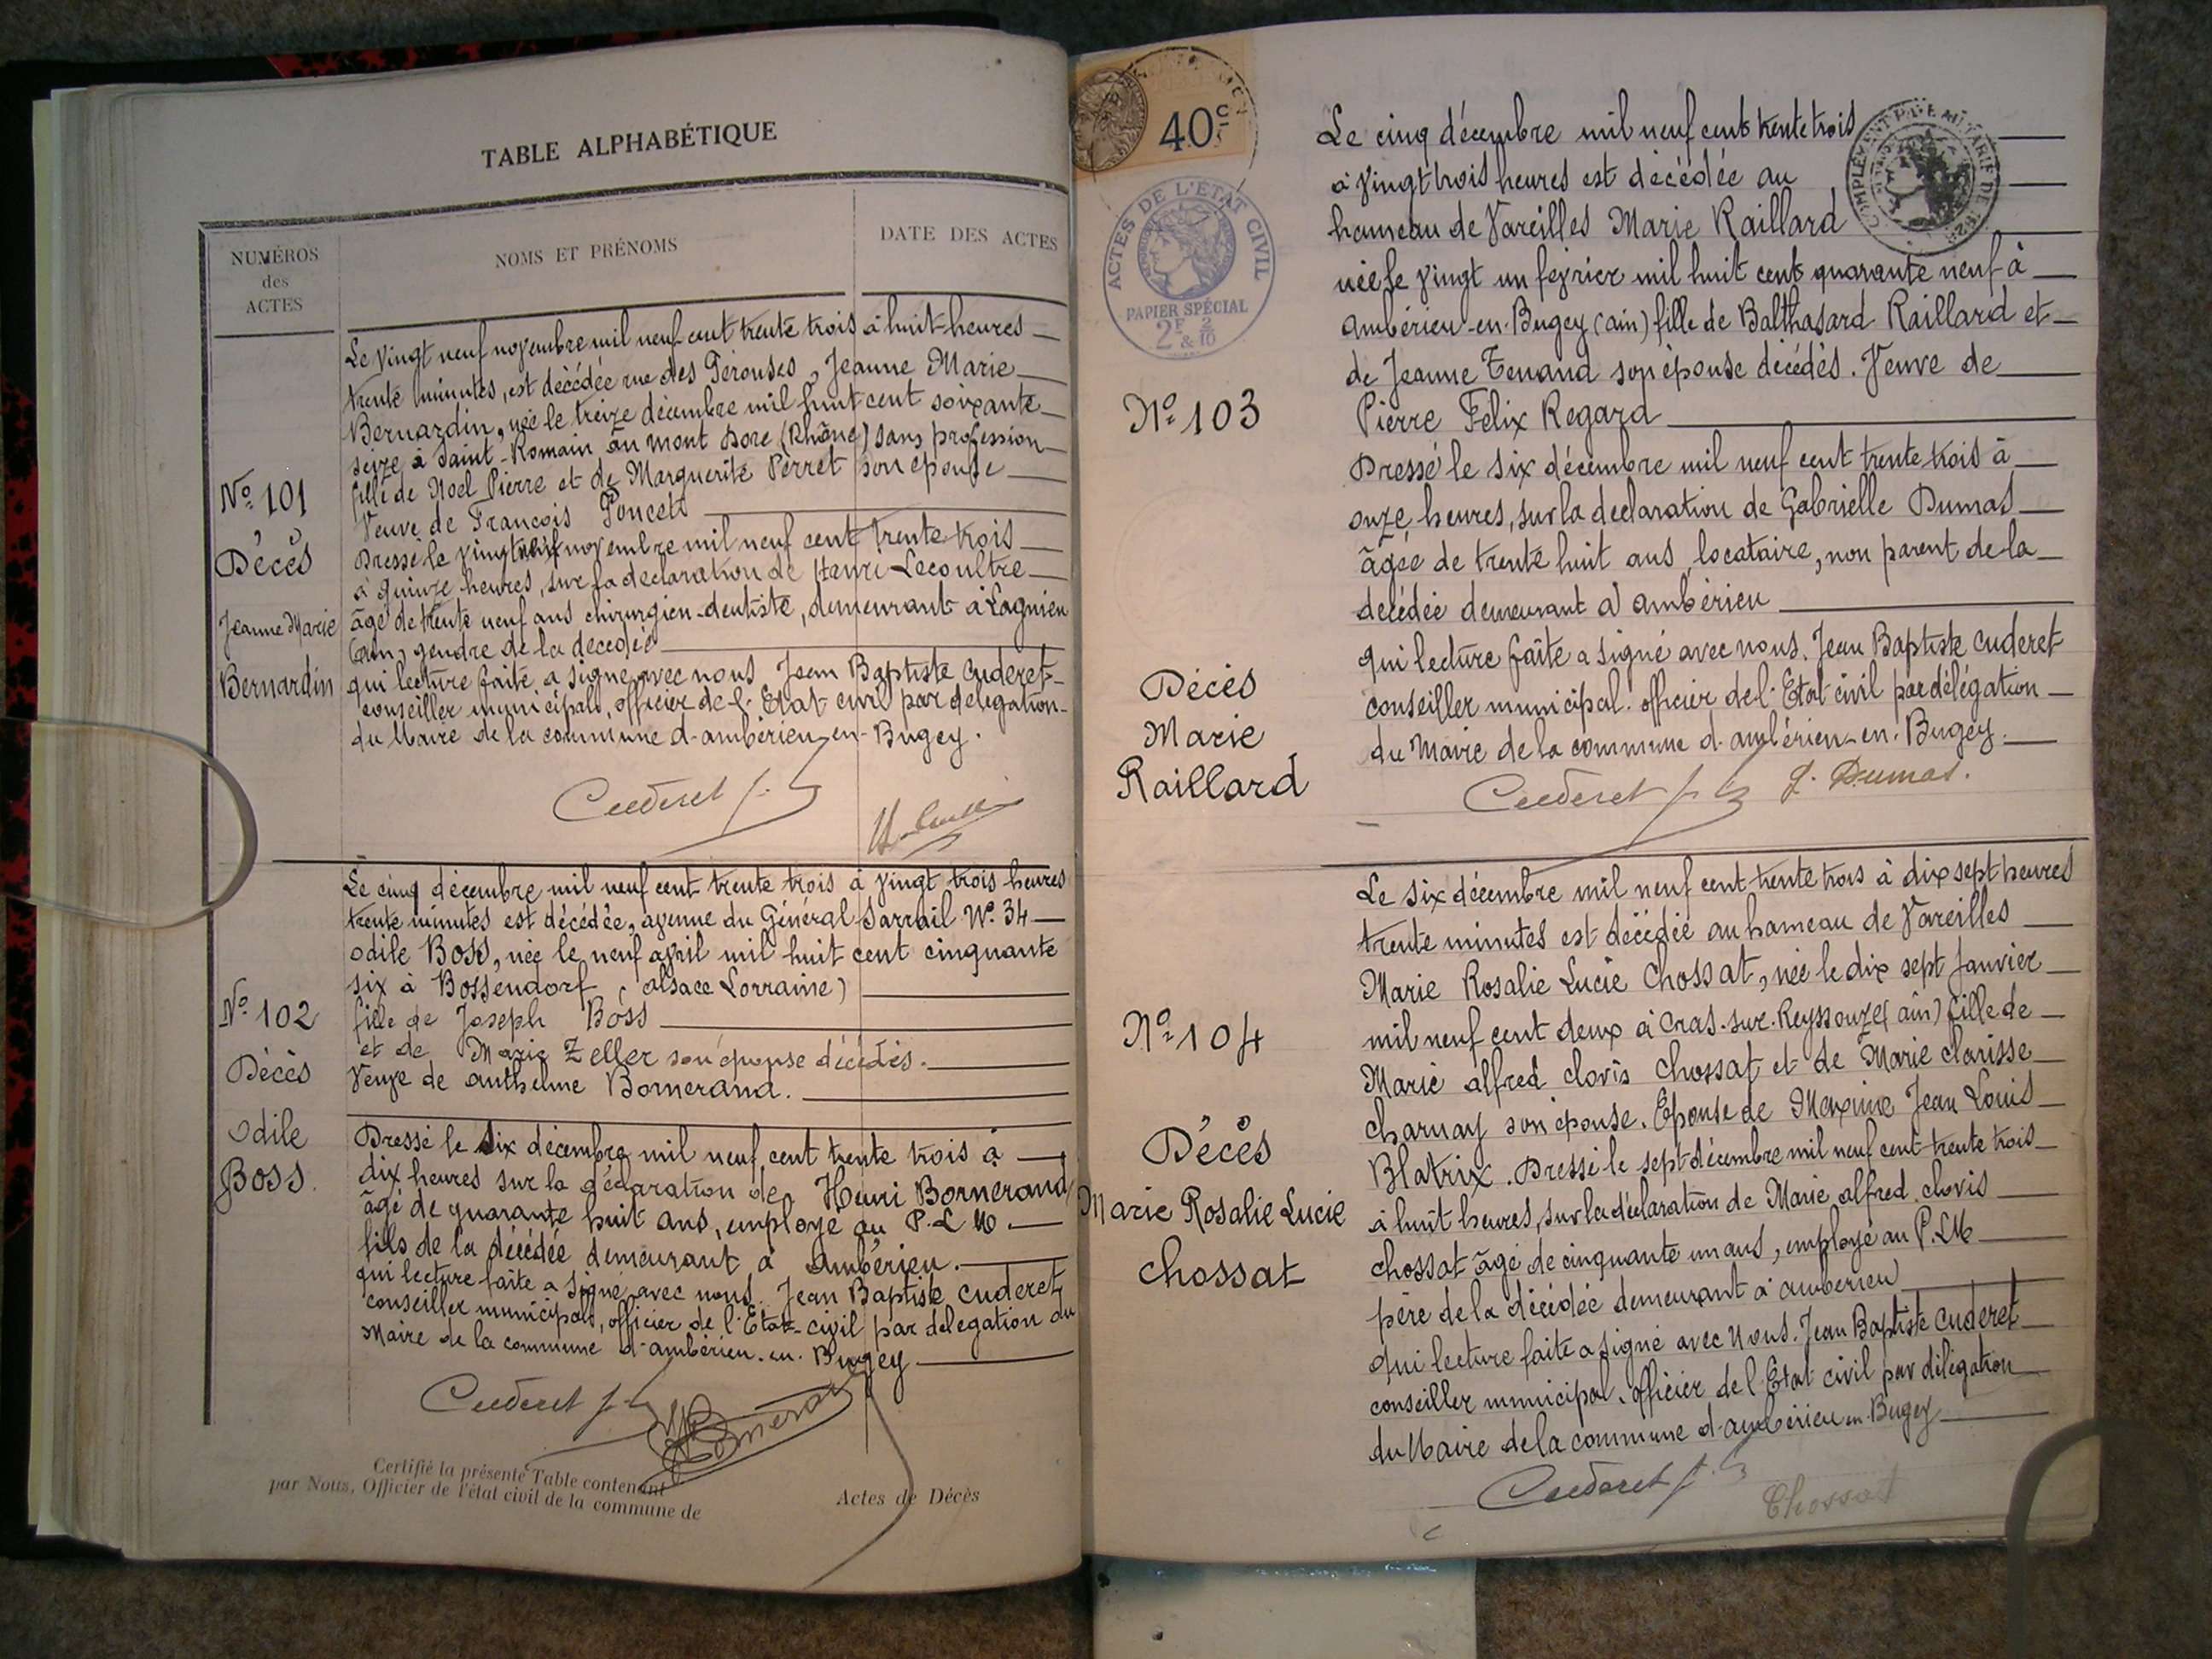 TABLE ALPHABÉTIQUE
NUMÉROS
des
ACTES
NOMS ET PRÉNOMS
DATE DES ACTES
N° 101
Décès
Jeanne Marie
Bernardin
Le vingt neuf novembre mil neuf cent trente trois à huit heures
trente minutes, est décédée rue des Pérouses, Jeanne Marie
Bernardin, née le treize décembre mil huit cent soixante
seize à Saint-Romain au mont Dore (Rhône) sans profession
fille de Noel Pierre et de Marguerite Perret son épouse
Veuve de François Poncet
Dressé le vingt neuf novembre mil neuf cent trente trois
à quinze heures, sur la declaration de Henri Lecoultre
âgé de trente neuf ans chirurgien-dentiste, demeurant à Lagnieu
(ain) gendre de la décédée
qui lecture faite a signé avec nous Jean Baptiste Cuderet
conseiller municipal, officier de l'Etat civil par délégation
du Maire de la commune d'ambérieu-en-Bugey.
Cuderet
N° 102
Décès
Odile
Boss
Le cinq décembre mil neuf cent trente trois à vingt trois heures
trente minutes est décédée, avenue du Général Sarrail N° 34
odile Boss, née le neuf avril mil huit cent cinquante
six à Bossendorf (alsace Lorraine)
fille de Joseph Boss
et de Marie Zeller son épouse décédés.
Veuve de anthelme Bornerand.
Dressé le six décembre mil neuf cent trente trois à
dix heures sur la déclaration de Henri Bornerand
âgé de quarante huit ans, employé au P.L.M.
fils de la décédée demeurant à Ambérieu.
qui lecture faite a signé avec nous Jean Baptiste Cuderet
conseiller municipal, officier de l'Etat-civil par délegation du
Maire de la commune d'ambérieu-en-Bugey
Cuderet
Bornerand
Certifié la présente Table contenant
Actes de Décès
par Nous, Officier de l'état civil de la commune de
40c
ACTES DE L'ÉTAT CIVIL
PAPIER SPÉCIAL
2F & 2/10
N° 103
Décès
Marie
Raillard
Le cinq décembre mil neuf cent trente trois
à vingt trois heures est décédée au
hameau de Vareilles Marie Raillard
née le vingt un fevrier mil huit cent quarante neuf à
ambérieu-en-Bugey (ain) fille de Balthasard Raillard et
de Jeanne Tenand son épouse décédés. Veuve de
Pierre Félix Regard
Dressé le six décembre mil neuf cent trente trois à
onze heures, sur la declaration de Gabrielle Dumas
âgée de trente huit ans, locataire, non parent de la
décédée demeurant à ambérieu
qui lecture faite a signé avec nous. Jean Baptiste Cuderet
conseiller municipal officier de l'Etat civil par délégation
du Maire de la commune d'ambérieu-en-Bugey.
Cuderet
G. Dumas.
N° 104
Décès
Marie Rosalie Lucie
Chossat
Le six décembre mil neuf cent trente trois à dix sept heures
trente minutes est décédée au hameau de Vareilles
Marie Rosalie Lucie Chossat, née le dix sept Janvier
mil neuf cent deux à Cras-sur-Reyssouze (ain) fille de
Marie alfred clovis Chossat et de Marie clarisse
Charnay son épouse. Epouse de Maxime Jean Louis
Blatrix. Dressé le sept décembre mil neuf cent trente trois
à huit heures, sur la déclaration de Marie alfred clovis
Chossat âgé de cinquante un ans, employé au P.L.M
père de la décédée demeurant à ambérieu
qui lecture faite a signé avec Nous. Jean Baptiste Cuderet
conseiller municipal, officier de l'Etat civil par délégation
du Maire de la commune d'ambérieu-en-Bugey
Cuderet
Chossat